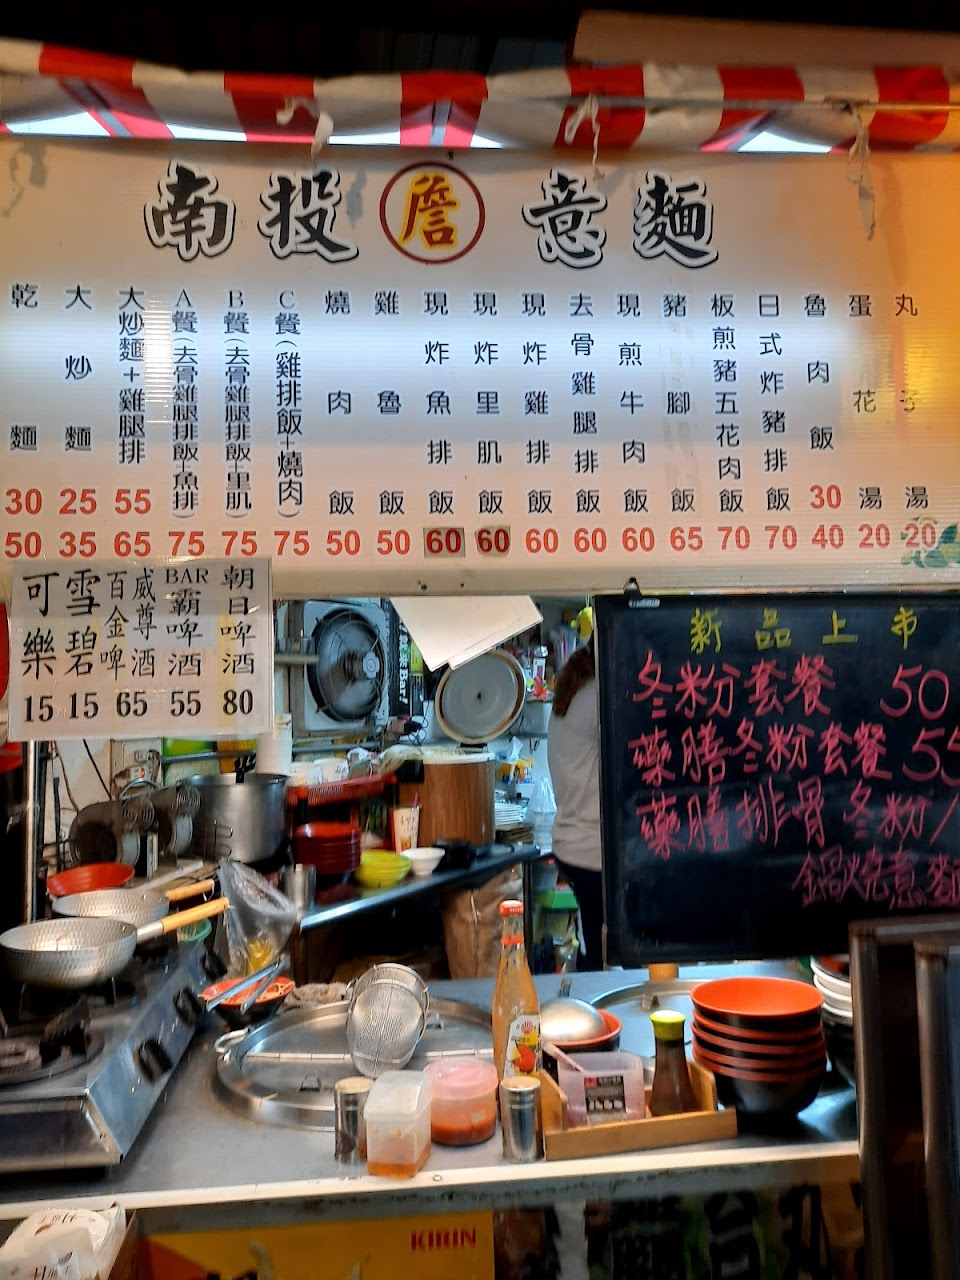 南投 詹 意麵
乾麵 30 50
大炒麵 25 35
大炒麵+雞腿排 55 65
A餐(去骨雞腿排飯+魚排) 75
B餐(去骨雞腿排飯+里肌) 75
C餐(雞排飯+燒肉) 75
燒肉飯 50
雞魯飯 50
現炸魚排飯 60
現炸里肌飯 60
現炸雞排飯 60
去骨雞腿排飯 60
現煎牛肉飯 60
豬腳飯 65
板煎豬五花肉飯 70
日式炸豬排飯 70
魯肉飯 30 40
蛋花湯 20
丸子湯 20
可樂 15
雪碧 15
百威金尊啤酒 65
BAR霸啤酒 55
朝日啤酒 80
新品上市
冬粉套餐 50
藥膳冬粉套餐 55
藥膳排骨冬粉/
鍋燒意麵
KIRIN